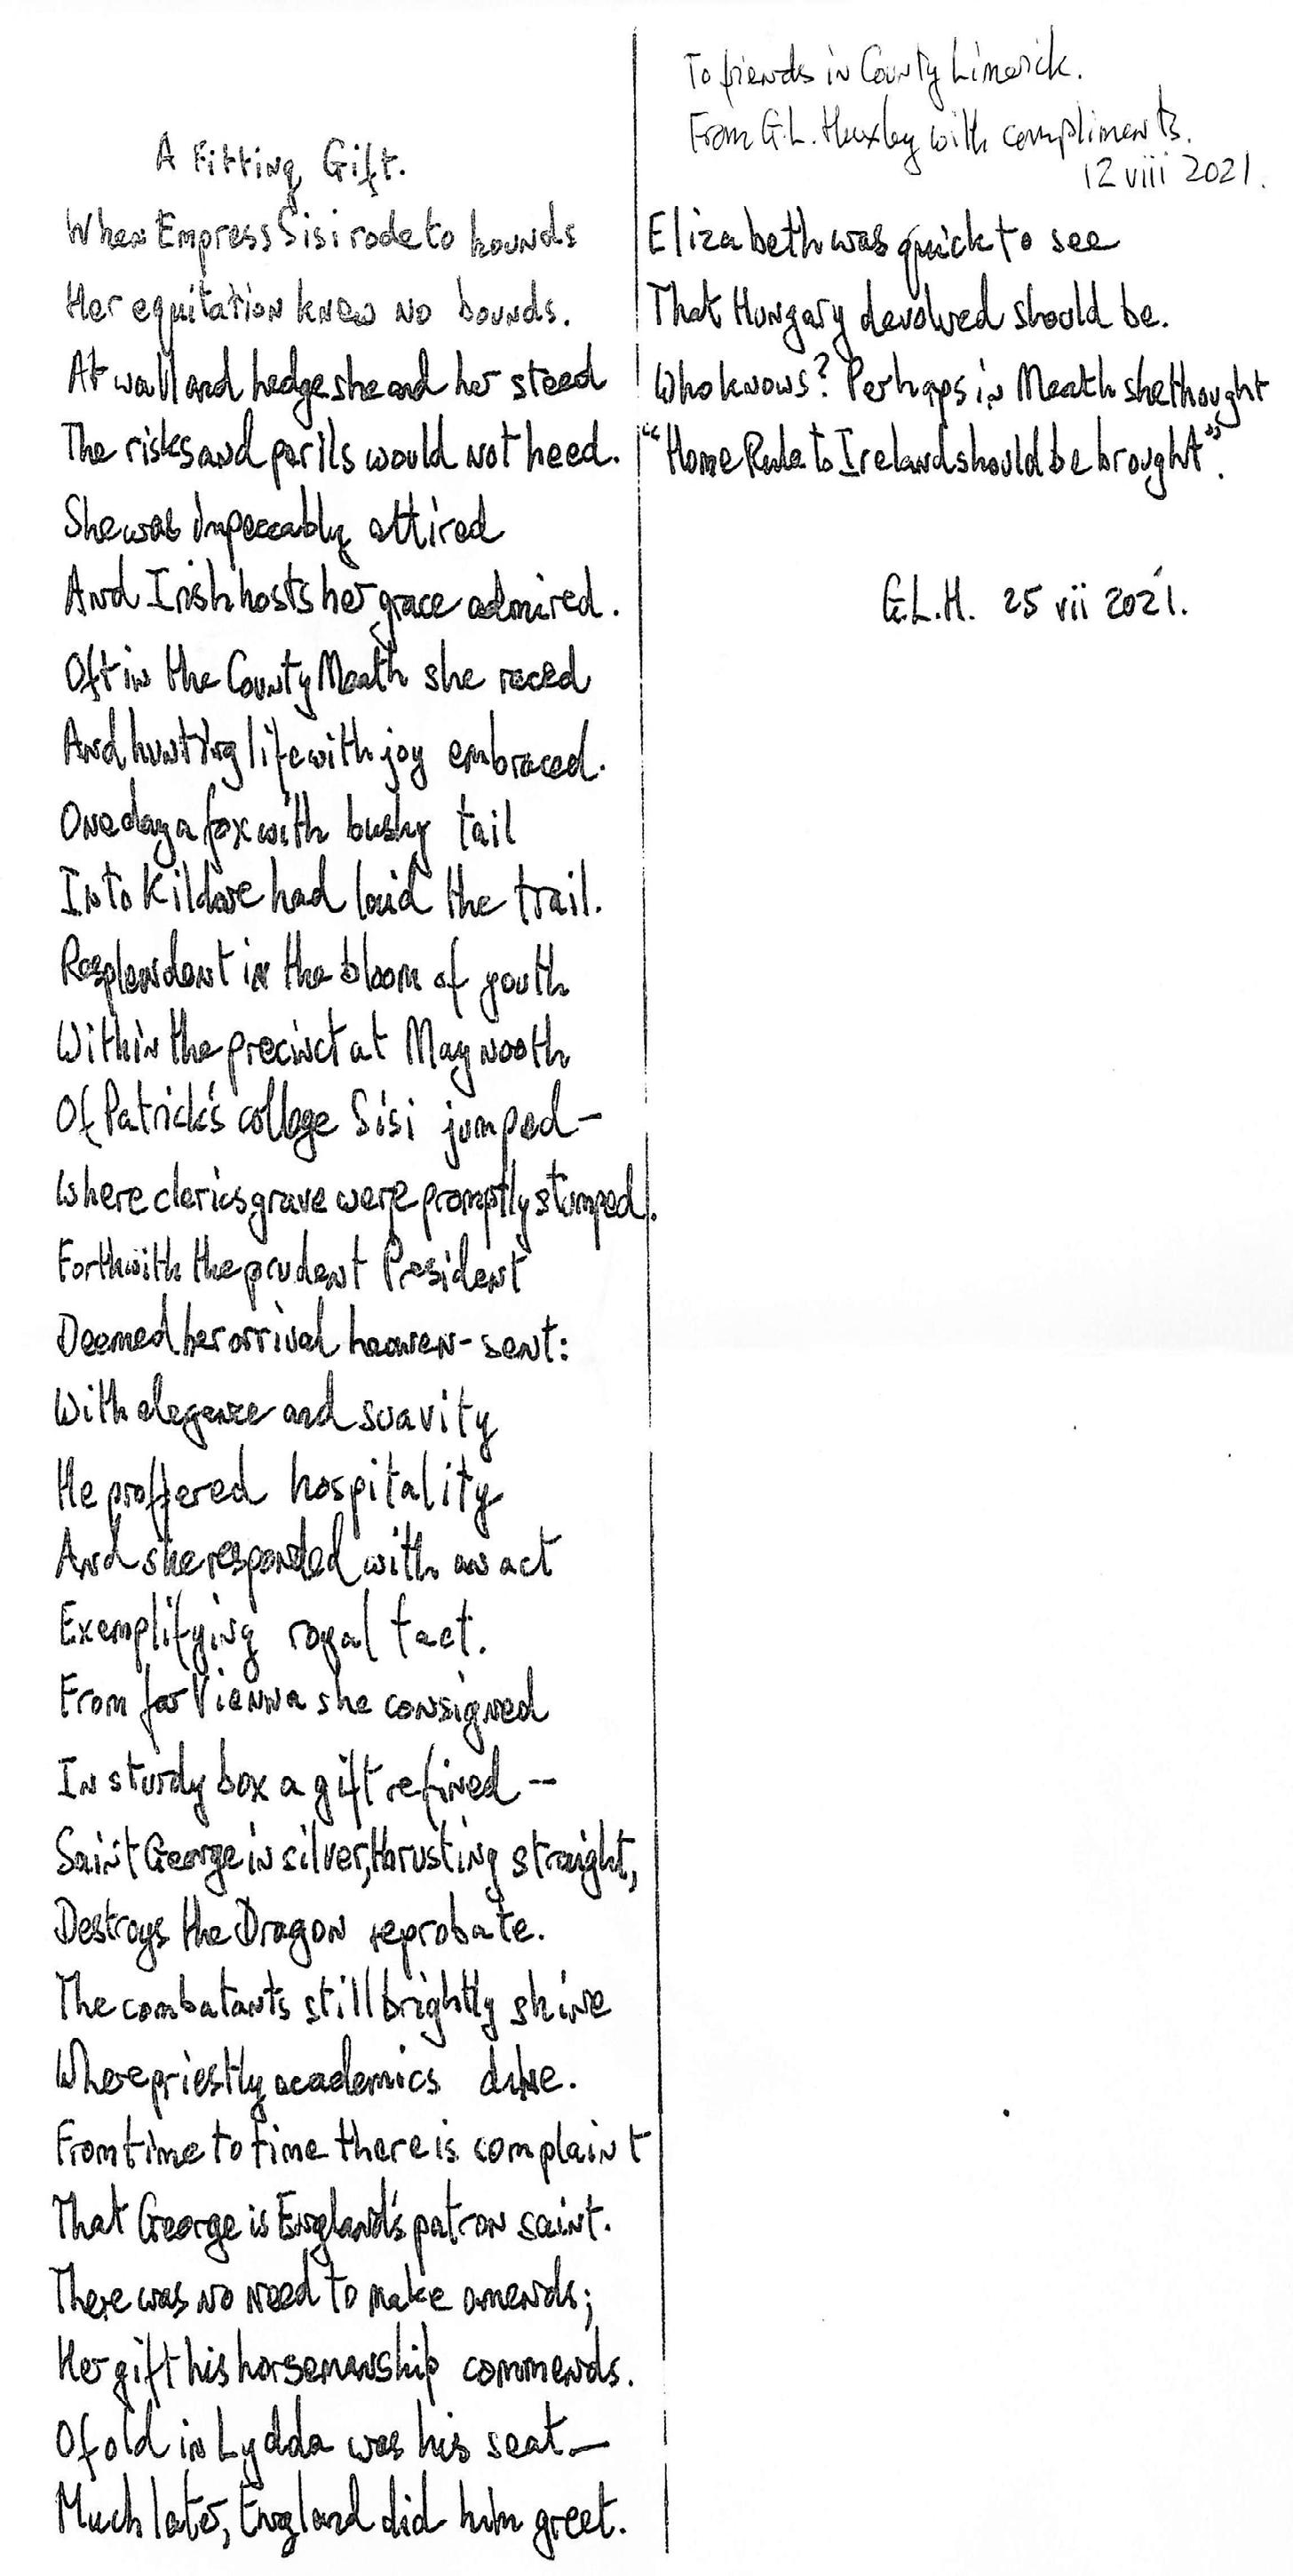 A Fitting Gift.
When Empress Sisi rode to hounds
Her equitation knew no bounds.
At wall and hedge she and her steed
The risks and perils would not heed.
She was impeccably attired
And Irish hosts her grace admired.
Oft in the County Meath she raced
And hunting life with joy embraced.
One day a fox with bushy tail
Into Kildare had laid the trail.
Resplendent in the bloom of youth
Within the precinct at Maynooth
Of Patrick's college Sisi jumped—
Where clerics grave were promptly stumped!.
Forthwith the prudent President
Deemed her arrival heaven-sent:
With elegance and suavity
He proffered hospitality
And she responded with an act
Exemplifying royal tact.
From far Vienna she consigned
In sturdy box a gift refined—
Saint George in silver, thrusting straight,
Destroys the Dragon reprobate.
The combatants still brightly shine
Where priestly academics dine.
From time to time there is complaint
That George is England's patron saint.
There was no need to make amends;
Her gift his horsemanship commends.
Of old in Lydda was his seat—
Much later, England did him greet.
To friends in County Limerick.
From G.L. Huxley with compliments.
12 viii 2021.
Elizabeth was quick to see
That Hungary devolved should be.
Who knows? Perhaps in Meath she thought
"Home Rule to Ireland should be brought".
G.L.H. 25 vii 2021.